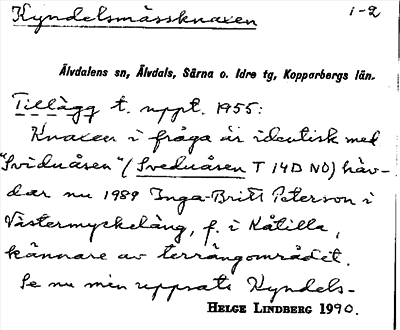 Kyndelsmässknaxen i-2
Älvdalens sn, Älvdals, Särna o. Idre tg, Kopparbergs län.
Tillägg t. uppt. 1955:
Knaxen i fråga är identisk med
"Sviduåsen" (Sveduåsen T 14D NO) häv-
dar nu 1989 Inga-Britt Peterson i
Västermyckeläng, f. i Kåtilla,
kännare av terrängområdet.
Se nu min uppsats Kyndels-
HELGE LINDBERG 1990.